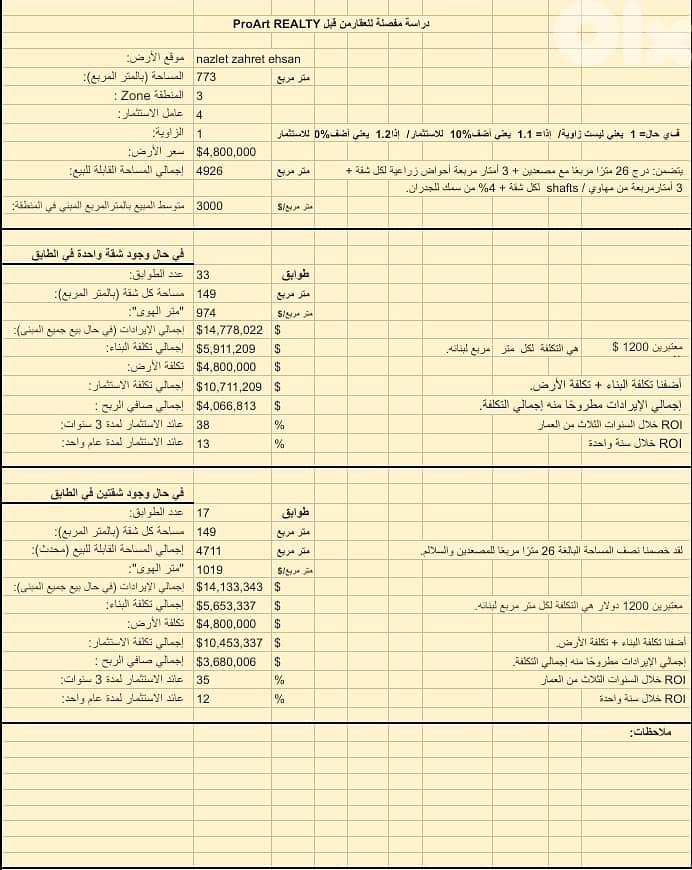 دراسة مفصلة للعقارمن قبل ProArt REALTY
olx
موقع الأرض: nazlet zahret ehsan
المساحة (بالمتر المربع): 773 متر مربع
المنطقة Zone : 3
عامل الاستثمار: 4
الزاوية: 1 في حال= 1 يعني ليست زاوية/ إذا= 1.1 يعني أضف%10 للاستثمار/ إذا1.2 يعني أضف%0 للاستثمار
سعر الأرض: $4,800,000
إجمالي المساحة القابلة للبيع: 4926 متر مربع يتضمن: درج 26 مترًا مربعًا مع مصعدين + 3 أمتار مربعة أحواض زراعية لكل شقة +
3 أمتارمربعة من مهاوي / shafts لكل شقة + 4% من سمك للجدران.
متوسط المبيع بالمترالمربع المبني في المنطقة: 3000 متر مربع/$
في حال وجود شقة واحدة في الطابق
عدد الطوابق: 33 طوابق
مساحة كل شقة (بالمتر المربع): 149 متر مربع
"متر الهوى": 974 متر مربع/$
إجمالي الإيرادات (في حال بيع جميع المبنى): $14,778,022 $
إجمالي تكلفة البناء: $5,911,209 $ معتبرين 1200 $ هي التكلفة لكل متر مربع لبنائه.
تكلفة الأرض: $4,800,000 $
إجمالي تكلفة الاستثمار: $10,711,209 $ أضفنا تكلفة البناء + تكلفة الأرض.
إجمالي صافي الربح : $4,066,813 $ إجمالي الإيرادات مطروحًا منه إجمالي التكلفة.
عائد الاستثمار لمدة 3 سنوات: 38 % ROI خلال السنوات الثلاث من العمار
عائد الاستثمار لمدة عام واحد: 13 % ROI خلال سنة واحدة
في حال وجود شقتين في الطابق
عدد الطوابق: 17 طوابق
مساحة كل شقة (بالمتر المربع): 149 متر مربع
إجمالي المساحة القابلة للبيع (محدث): 4711 متر مربع لقد خصمنا نصف المساحة البالغة 26 مترًا مربعًا للمصعدين والسلالم.
"متر الهوى": 1019 متر مربع/$
إجمالي الإيرادات (في حال بيع جميع المبنى): $14,133,343 $
إجمالي تكلفة البناء: $5,653,337 $ معتبرين 1200 دولار هي التكلفة لكل متر مربع لبنائه.
تكلفة الأرض: $4,800,000 $
إجمالي تكلفة الاستثمار: $10,453,337 $ أضفنا تكلفة البناء + تكلفة الأرض.
إجمالي صافي الربح : $3,680,006 $ إجمالي الإيرادات مطروحًا منه إجمالي التكلفة.
عائد الاستثمار لمدة 3 سنوات: 35 % ROI خلال السنوات الثلاث من العمار
عائد الاستثمار لمدة عام واحد: 12 % ROI خلال سنة واحدة
ملاحظات: